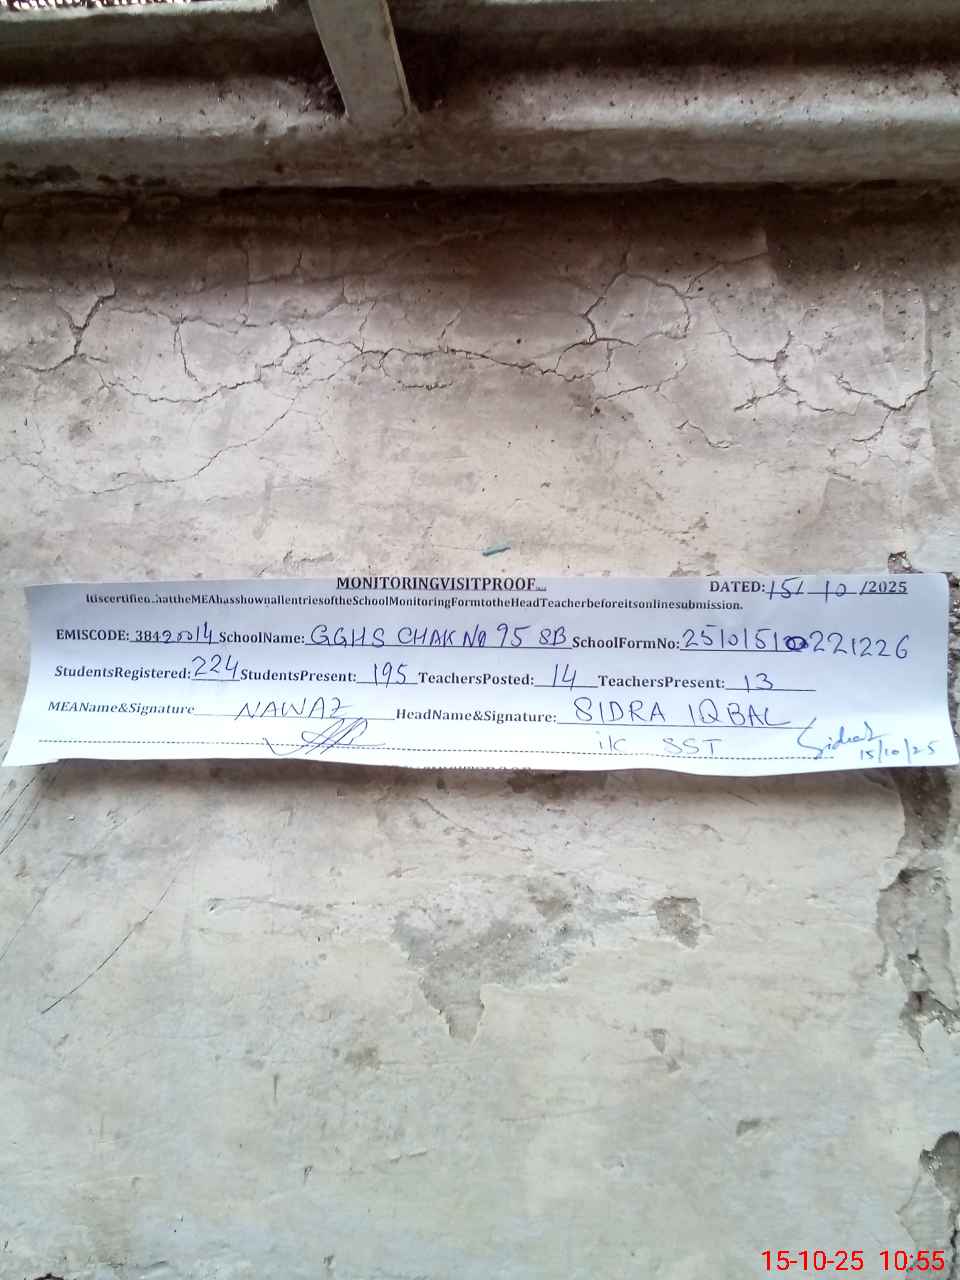 MONITORINGVISITPROOF
DATED: 15/ 10 /2025
ItiscertifiedthattheMEAhasshownallentriesoftheSchoolMonitoringFormtotheHeadTeacherbeforeitsonlinesubmission.
EMISCODE: 38420014 SchoolName: GGHS CHAK No 95 SB SchoolFormNo: 2510151 221226
StudentsRegistered: 224 StudentsPresent: 195 TeachersPosted: 14 TeachersPresent: 13
MEAName&Signature NAWAZ HeadName&Signature: SIDRA IQBAL
i/c SST Sidra
15/10/25
15-10-25 10:55